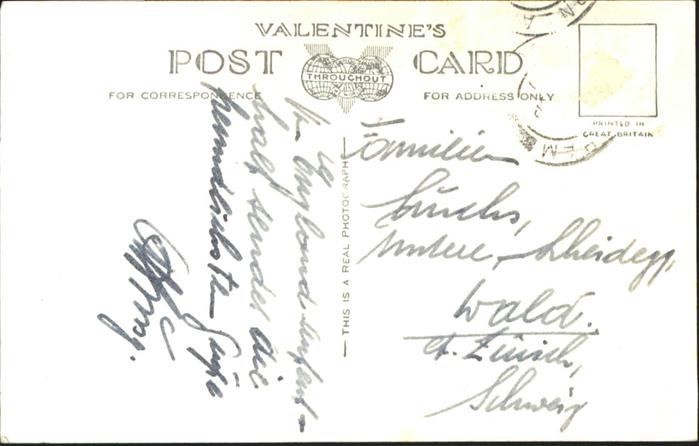 VALENTINE'S
POST CARD
THROUGHOUT
FOR CORRESPONDENCE
FOR ADDRESS ONLY
PRINTED IN
GREAT BRITAIN
THIS IS A REAL PHOTOGRAPH
England
sendet die
freundlichsten Grüße
Familien
Untere Scheidegg,
Wald.
Kt. Zürich,
Schweiz